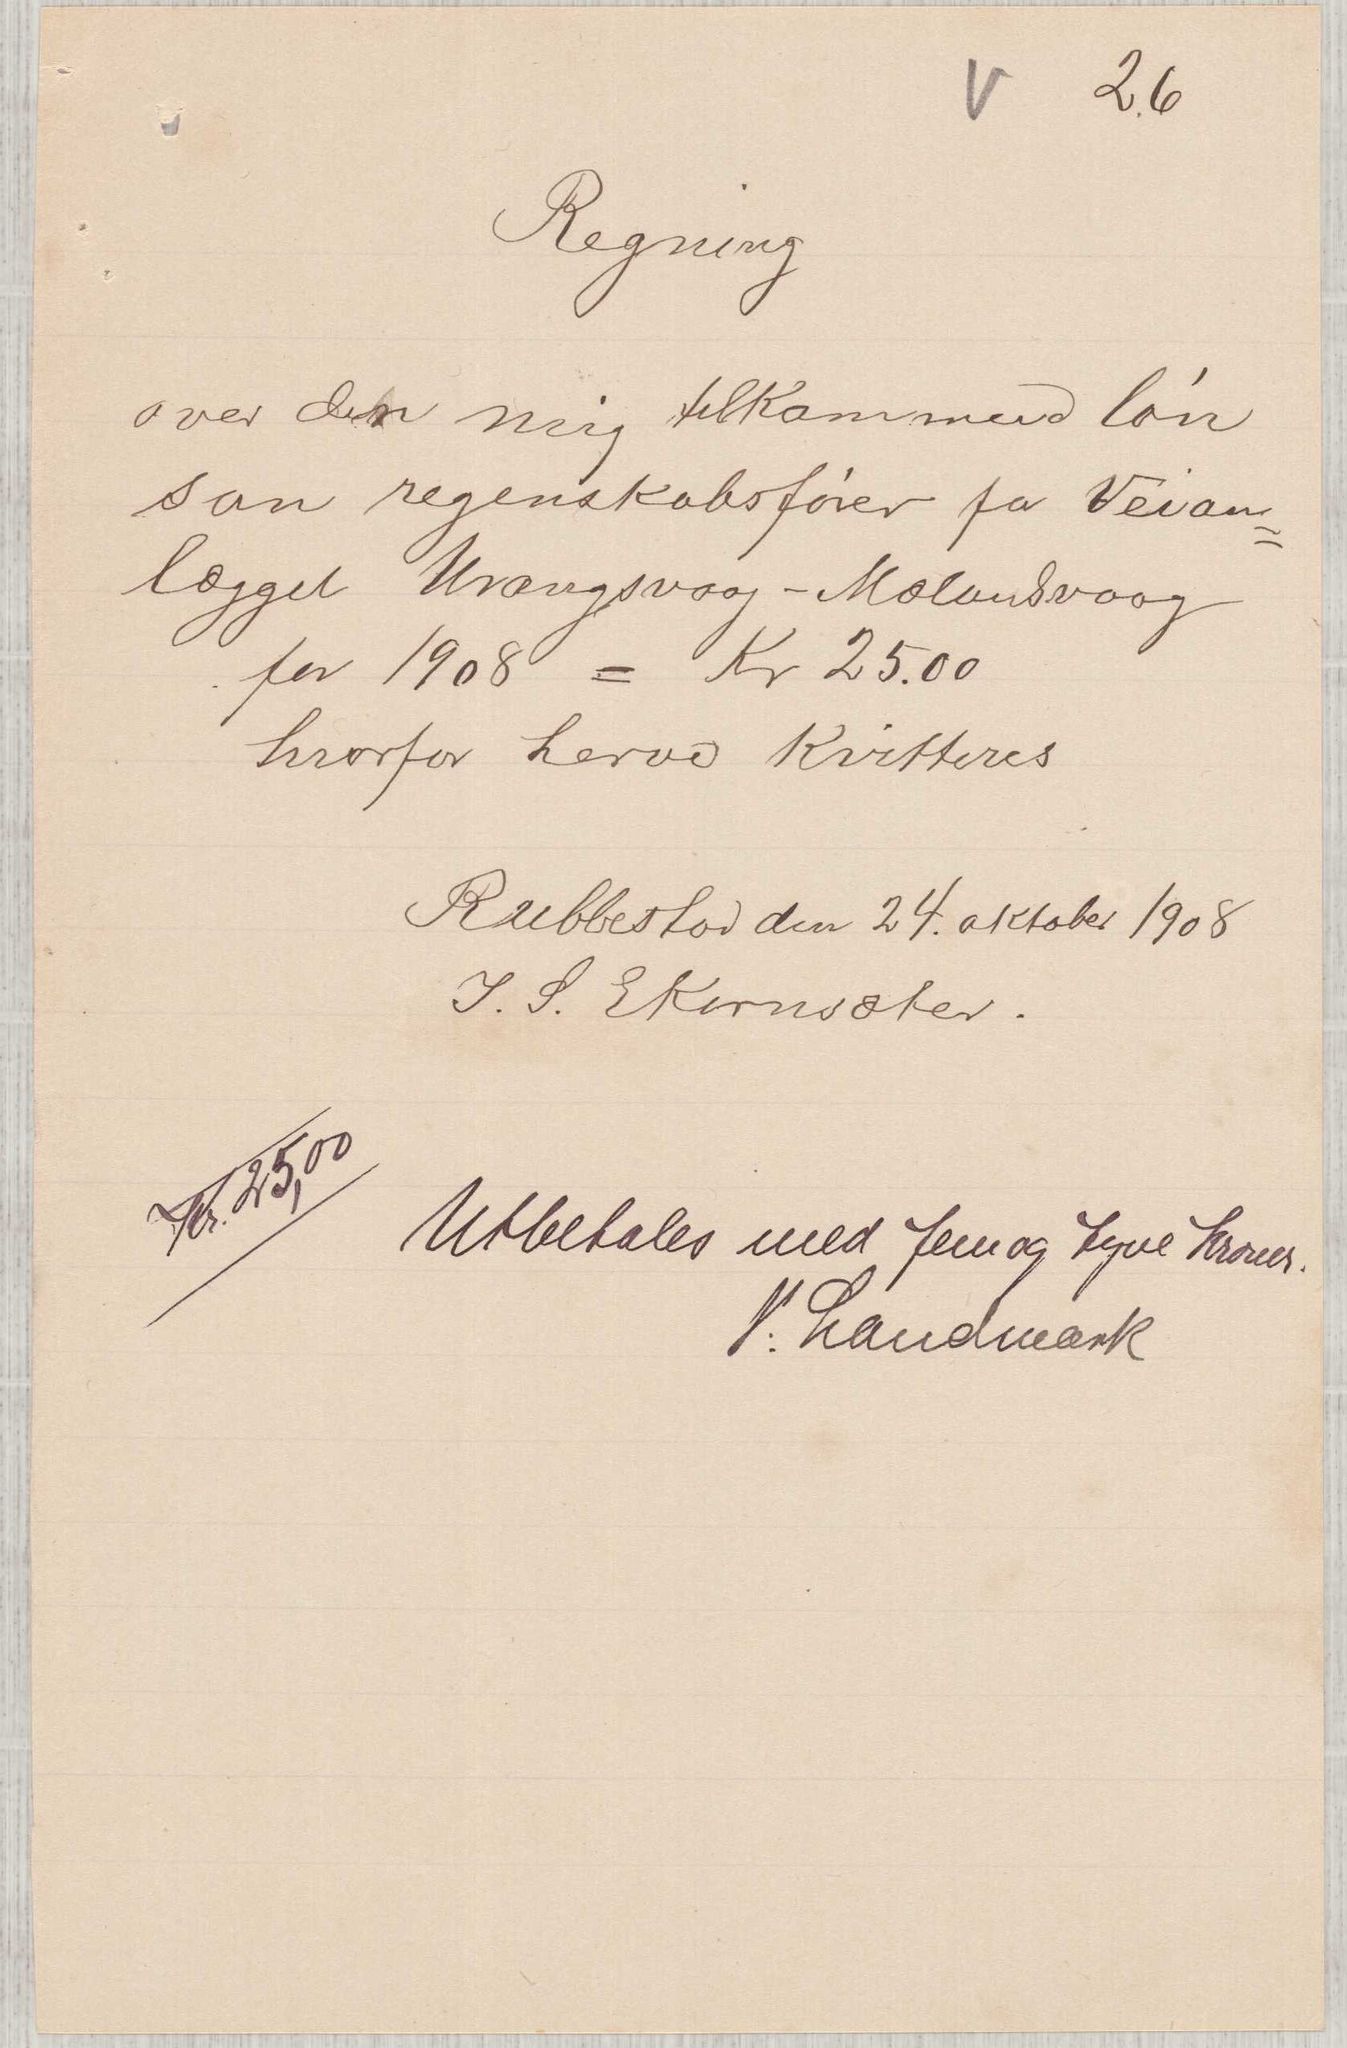 V 26
Regning
over den mig tilkommend lón
som regenskabsfórer for Veian=
lægget Urangsvaag - Mælandsvaag
for 1908 = Kr 25.00
hvorfor herved kvitteres
Rubbestad den 24. oktober 1908
I. S. Ekornsæter.
Kr. 25,00
Utbetales med fem og tyve kroner.
N. Landmark